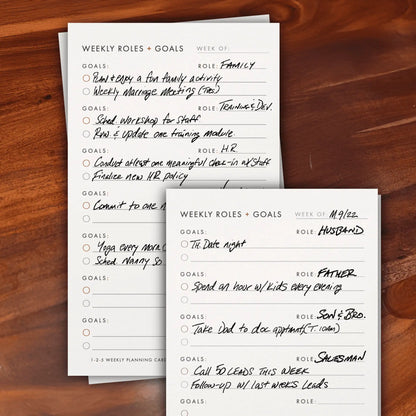 WEEKLY ROLES + GOALS WEEK OF:
GOALS: ROLE: FAMILY
Plan + enjoy a fun family activity
Weekly Marriage Meeting (Tues)
GOALS: ROLE: Training & Dev.
Sched. Workshop for Staff
Rvw. & update one training module
GOALS: ROLE: HR
Conduct at least one meaningful check-in w/staff
Finalize new HR policy
GOALS:
Commit to one
GOALS:
Yoga every morn
Sched. Nanny so
GOALS:
GOALS:
1-2-5 WEEKLY PLANNING CARD
WEEKLY ROLES + GOALS WEEK OF: 9/22
GOALS: ROLE: HUSBAND
TH. Date night
GOALS: ROLE: FATHER
Spend an hour w/kids every evening
GOALS: ROLE: SON & BRO.
Take Dad to doc apptmnt (T. 10am)
GOALS: ROLE: SALESMAN
Call 50 LEADS THIS WEEK
Follow-up w/ last week's Leads
GOALS: ROLE: